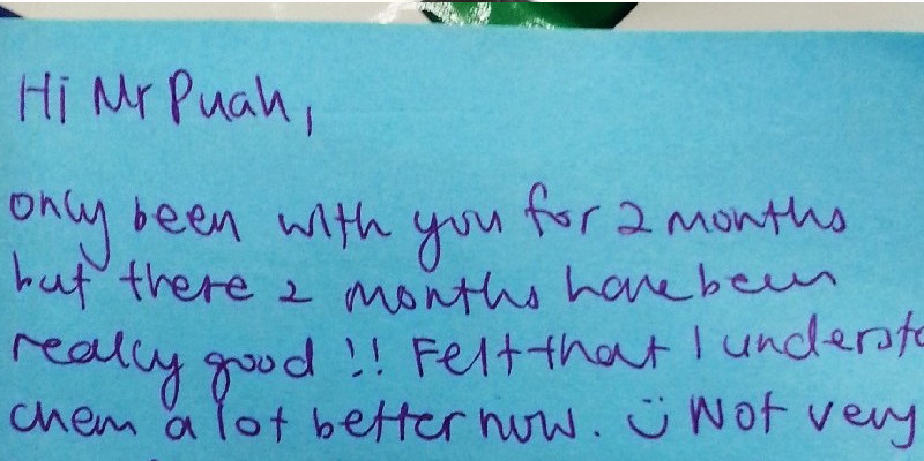 Hi Mr Puah,
only been with you for 2 months
but there 2 months have been
really good !! Felt that I understa
chem a lot better now. Ü Not very